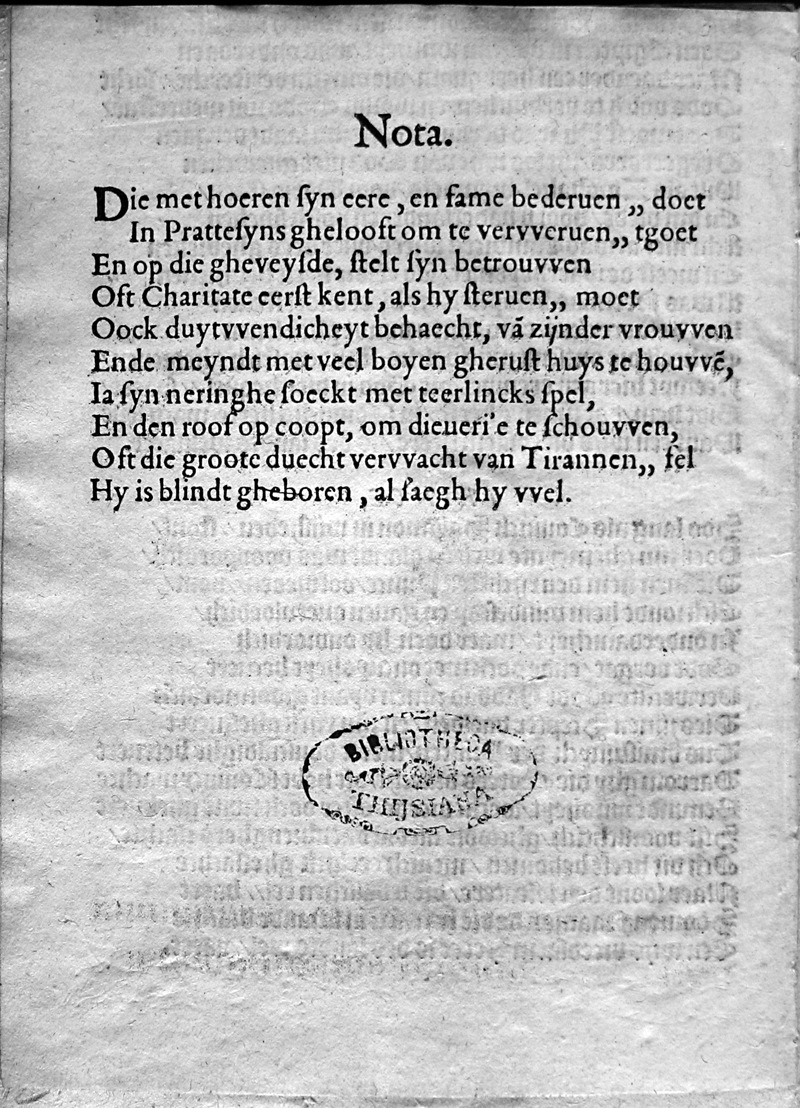 Nota.
Die met hoeren ſyn eere, en fame bederuen„ doet
In Pratteſyns ghelooft om te vervveruen„ tgoet
En op die gheveyſde, ſtelt ſyn betrouvven
Oft Charitate eerſt kent, als hy ſteruen„ moet
Oock duytvvendicheyt behaecht, vā zijnder vrouvven
Ende meyndt met veel boyen gheruſt huys te houvvē,
Ia ſyn neringhe ſoeckt met teerlincks ſpel,
En den roof op coopt, om dieueri'e te ſchouvven,
Oft die groote duecht vervvacht van Tirannen„ fel
Hy is blindt gheboren, al ſaegh hy vvel.
BIBLIOTHECA
THIJSIANA